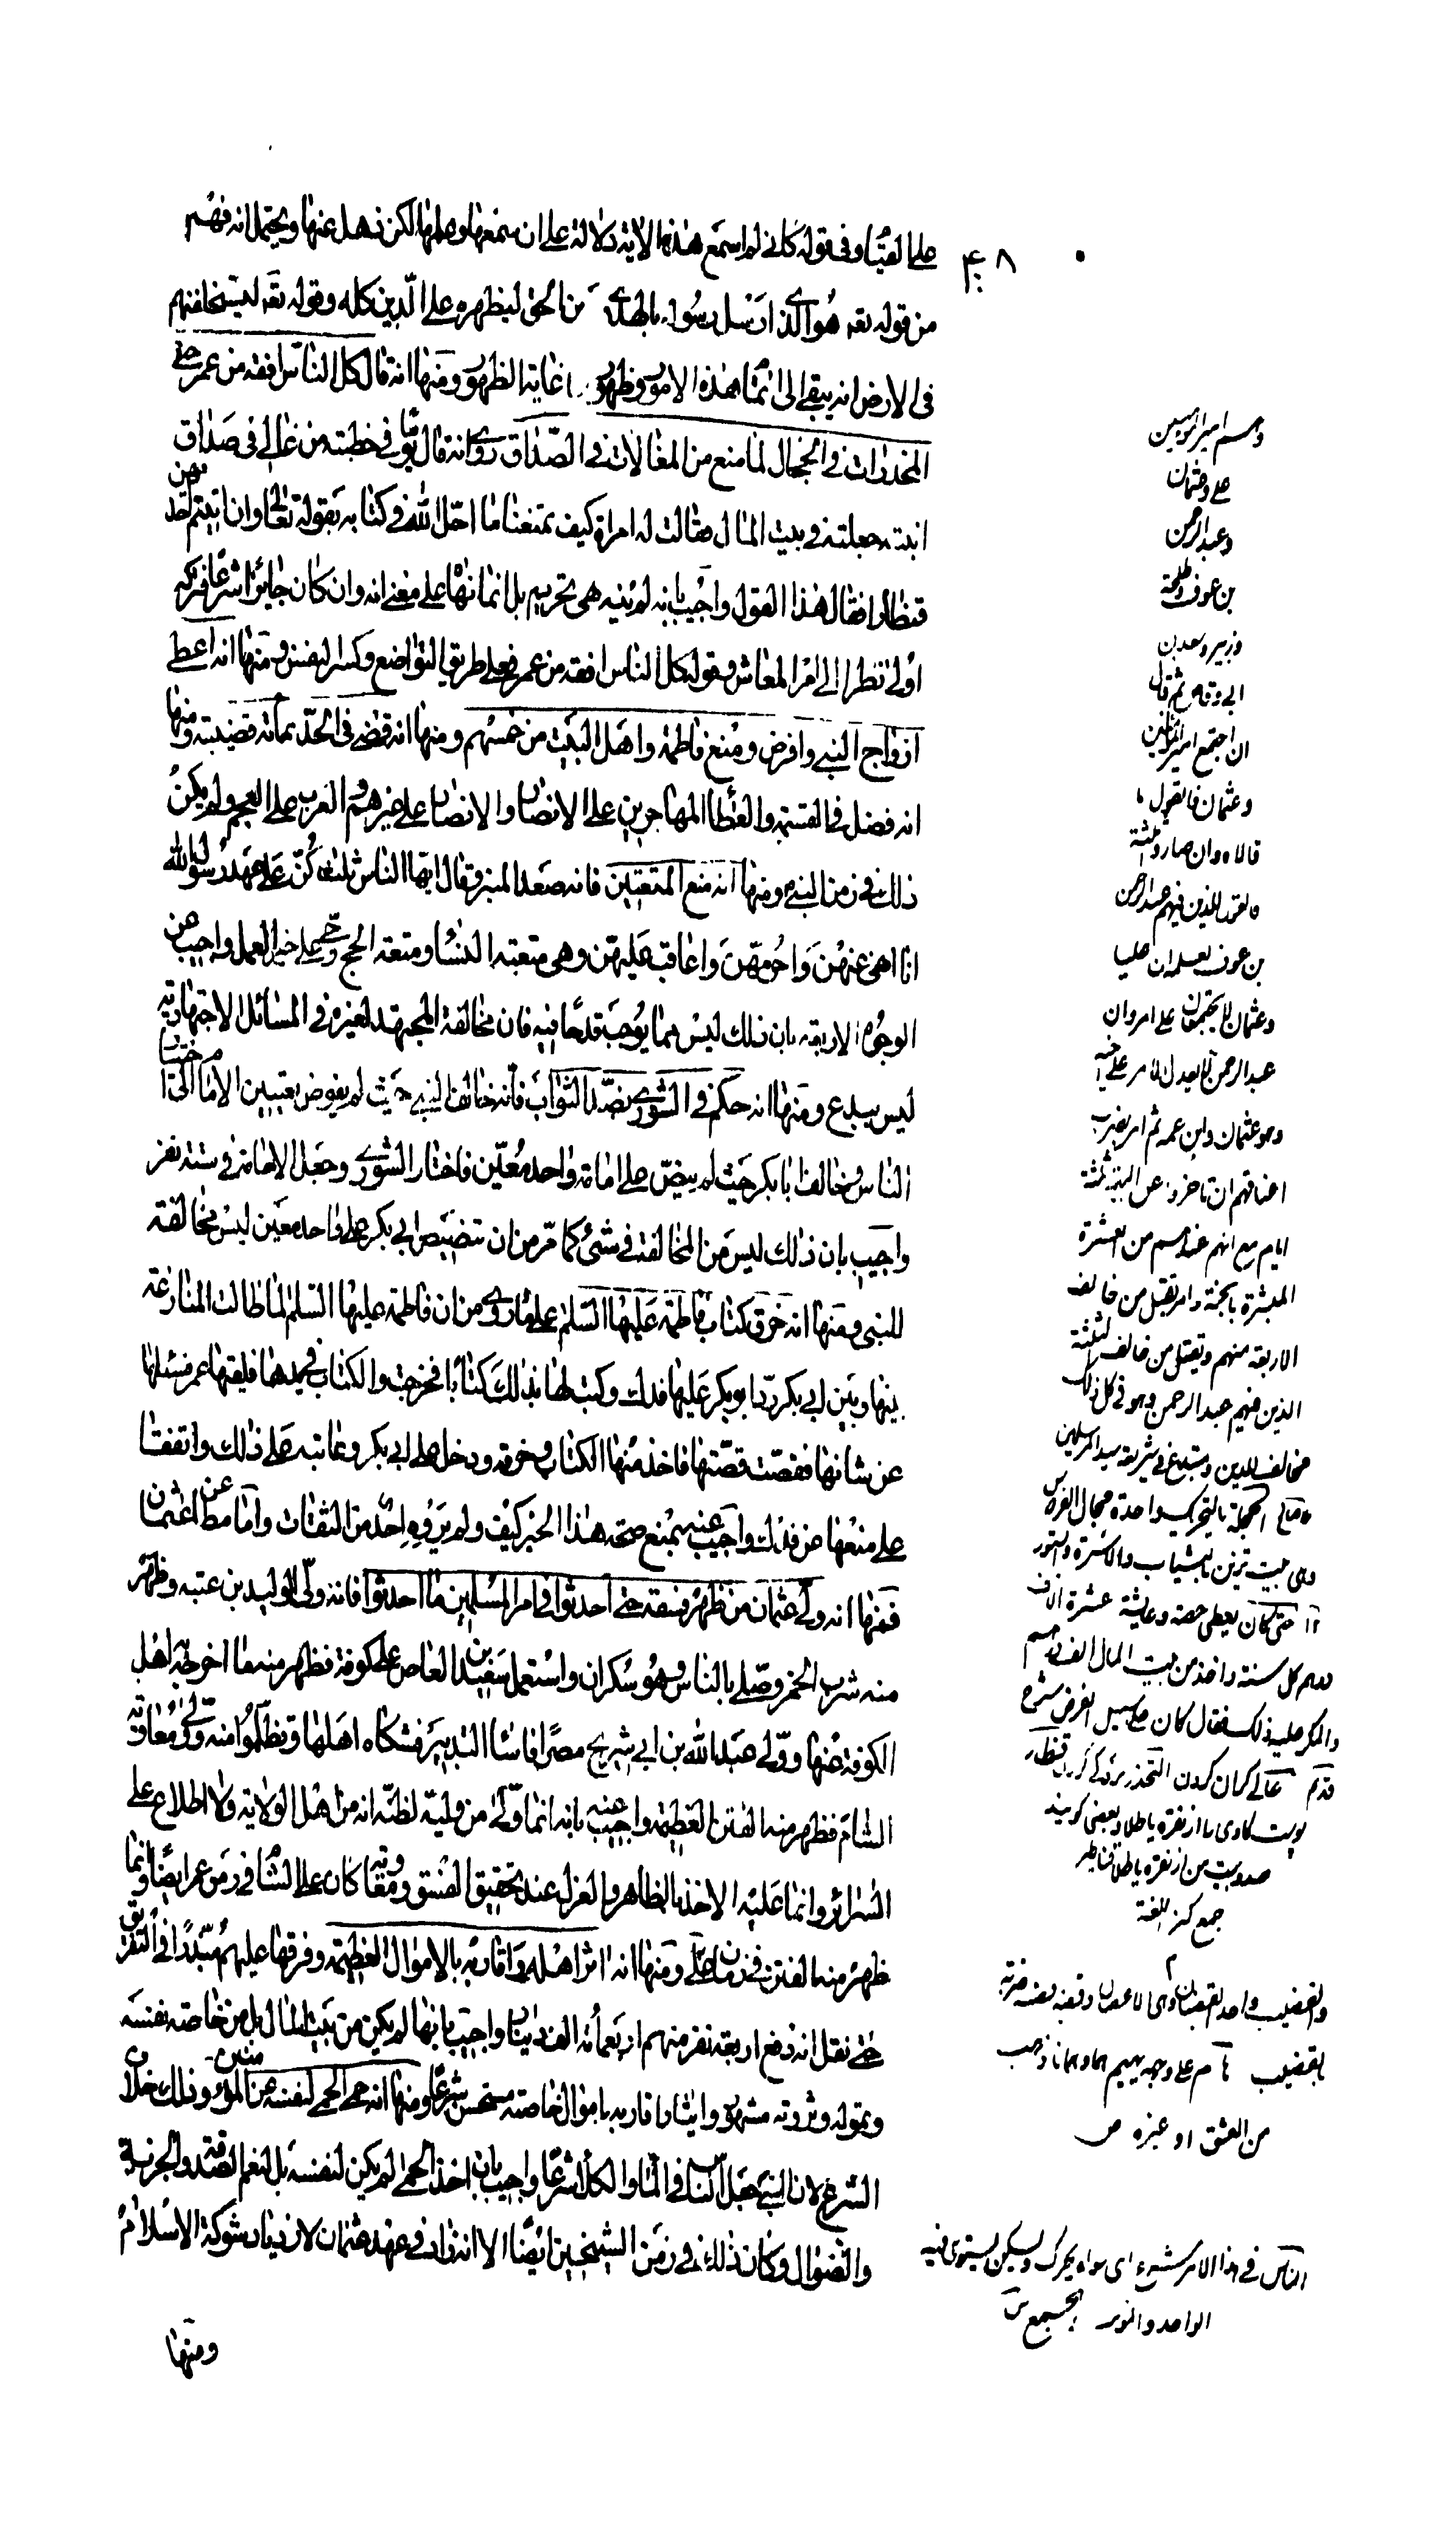 ٤٠٨
علما لقبتا وفى قوله كانى لم اسمع هذه الاية دلالة على ان سمعها وعلمها لكن ذهل عنها ويحتمل انه فهم
من قوله تعه هو الذى ارسل رسوله بالهدى ودين الحق ليظهره على الدين كله وقوله تعه ليستخلفنهم
فى الارض انه يبقى الى تمام هذه الامور وظهورها غاية الظهور ومنها انه قال كل الناس افقه من عمر حتى
المخدرات فى الحجال لما منع من المغالات فى الصداق روى انه قال يوما فى خطبته من غالى فى صداق
ابنته جعلته فى بيت المال فقالت له امراة كيف تمنعنا ما احل الله فى كتابه بقوله تعالى وان اتيتم احديهن
قنطارا فقال هذا القول واجيب بانه لم ينه نهى تحريم بل انما نهاه على معنى انه وان كان جايزا شرعا فتركه
اولى نظرا الى امر المعاش وقوله كل الناس افقه من عمر فعلى طريق التواضع وكسر النفس ومنها انه اعطى
ازواج النبى وافرض ومنع فاطمة واهل البيت من خمسهم ومنها انه قضى فى الحد بمائة قضيب ومنها
انه فضل فى القسمة والعطا المهاجرين على الانصار والانصار على غيرهم والعرب على العجم ولم يكن
ذلك فى زمن النبى ومنها انه منع المتعتين فانه صعد المنبر وقال ايها الناس ثلث كن على عهد رسول الله
انا انهى عنهن واحرمهن واعاقب عليهن وهى متعة النسا ومتعة الحج وحى على خير العمل واجيب عن
الوجوه الاربعة بان ذلك ليس مما يوجب قدحا فيه فان مخالفة المجتهد لغيره فى المسائل الاجتهادية
ليس ببدع ومنها انه حكم فى الشورى بضد الصواب فانه خالف النبى حيث لم يفوض تعيين الامام الى اختيار
الناس وخالف ابا بكر حيث لم ينص على امامة واحد معين فاختار الشورى وجعل الامامة فى ستة نفر
واجيب بان ذلك ليس من المخالفة فى شئ كما مر من ان تنصيص ابى بكر على واحد معين ليس مخالفة
للنبى ومنها انه خرق كتاب فاطمة عليها السلام على ما روى من ان فاطمة عليها السلم لما طالت المنازعة
بينها وبين ابى بكر رد ابو بكر عليها فدك وكتب لها بذلك كتابا فخرجت والكتاب فى يدها فلقيها عمر فسئلها
عن شانها فقصت قصتها فاخذ منها الكتاب وخرقه ودخل على ابى بكر وعاتبه على ذلك واتفقا
على منعها من فدك واجيب عنه بمنع صحة هذا الخبر كيف ولم يروه احد من الثقات واما مطاعن عثمان
فمنها انه ولى عثمان من ظهر فسقه حتى احدثوا فى امر المسلمين ما احدثوا فانه ولى الوليد بن عتبه وظهر
منه شرب الخمر وصلى بالناس وهو سكران واستعمل سعيد بن العاص على كوفة فظهر منه ما اخرجه اهل
الكوفة عنها وولى عبد الله بن ابى شريح مصر افاسا التدبير فشكاه اهلها وتظلموا منه وولى معاوية
الشام فظهر منه الفتن العظيمة واجيب عنه بانه انما ولى من وليه لظنه انه من اهل الولاية ولا اطلاع على
السرائر وانما عليه الاخذ بالظاهر والعزل عند تحقيق الفسق ومعاوية كان على الشام فى زمن عمر ايضا وانما
ظهر منه الفتن فى زمان على ومنها انه اثر اهله واقاربه بالاموال العظيمة وفرقها عليهم مبذرا فى التفريق
حتى نقل انه دفع اربعة نفر منهم اربعمائه الف دينار واجيب بانها لم يكن من بيت المال بل من خاصة نفسه
وتموله وثروته مشهور وايثار اقاربه باموال خاصته مستحسن شرعا ومنها انه حمى الحمى لنفسه عن المؤمنين وذلك خلاف
الشرع لان النبى جعل الناس فى الما والكلا شرعا واجيب بان اخذ الحمى لم يكن لنفسه بل لنعم الصدقة والجزية
والضوال وكان ذلك فى زمن الشيخين ايضا الا انه زاد فى عهد عثمان لازدياد شوكة الاسلام
ومنها
وهم امير المؤمنين
على وعثمان
وعبد الرحمن
بن عوف وطلحة
وزبير وسعد بن
ابى وقاص ثم قال
ان اجتمع امير المؤمنين
وعثمان فالقول ما
قالاه وان صاروا ثلثة
فالقول للذين فيهم عبد الرحمن
بن عوف لعلمه ان عليا
وعثمان لا يجتمعان على امر وان
عبد الرحمن لا يعدل الامر على اخيه
وهو عثمان وابن عمه ثم امر بضرب
اعناقهم ان تاخروا عن البيعة ثلثة
ايام مع انهم عندهم من العشرة
المبشرة بالجنة وامر بقتل من خالف
الاربعة منهم وبقتل من خالف الثلثة
الذين فيهم عبد الرحمن وهو فى كل ذلك
مخالف للدين ومبتدع فى شريعة سيد المرسلين
الحجلة بالتحريك واحدة حجال العروس
وهى بيت تزين بالثياب والاسرة والستور
حتى كان يعطى حفصة وعايشة عشرة الاف
درهم كل سنة واخذ من بيت المال الف درهم
وانكر عليه ذلك فقال كان على سبيل القرض شرح
قنطار
پوست كاوى را از نقره يا طلا وبعضى كويند
صد وبيست من از نقره يا طلا قناطير
جمع كنز اللغة
والقضيب واحد القضبان وهى الاغصان وقضبه ضربه
بالقضيب
من العشق او غيره ص
الناس فى هذا الامر شرع اى سواء يحرك ويسكن يستوى فيه
الواحد والمؤنث والجمع